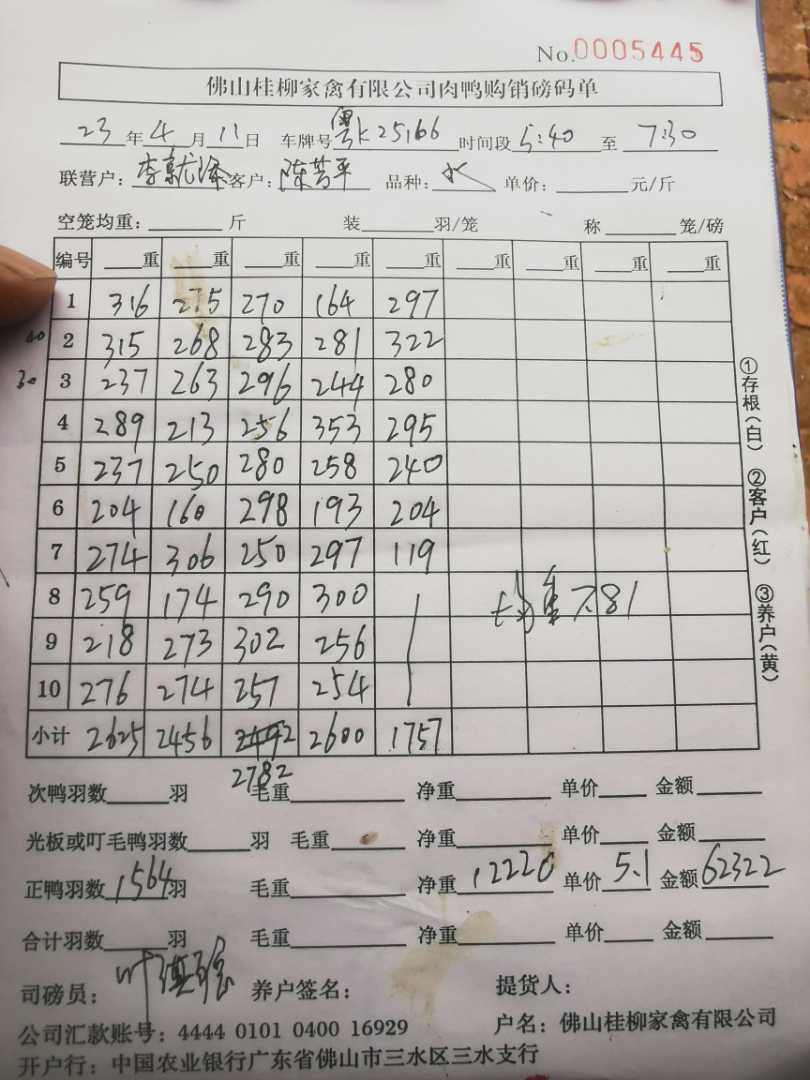 No.0005445
佛山桂柳家禽有限公司肉鸭购销磅码单
23年4月11日 车牌号粤K25166时间段5:40至7:30
联营户:李 客户:陈芳平 品种: 单价:____元/斤
空笼均重:____斤 装____羽/笼 称____笼/磅
编号 __重 __重 __重 __重 __重 __重 __重 __重 __重
1 316 275 270 164 297
2 315 268 283 281 322
3 237 263 296 244 280
4 289 213 256 353 295
5 237 250 280 258 240
6 204 160 298 193 204
7 274 306 250 297 119
8 259 174 290 300 均重7.81
9 218 273 302 256
10 276 274 257 254
小计 2625 2456 2600 1757
2782
次鸭羽数____羽 毛重____ 净重____ 单价____ 金额____
光板或叮毛鸭羽数____羽 毛重____ 净重____ 单价____ 金额____
正鸭羽数1564羽 毛重____ 净重12220 单价5.1 金额62322
合计羽数____羽 毛重____ 净重____ 单价____ 金额____
司磅员:叶 养户签名: 提货人:
公司汇款账号:4444 0101 0400 16929 户名:佛山桂柳家禽有限公司
开户行:中国农业银行广东省佛山市三水区三水支行
①存根(白) ②客户(红) ③养户(黄)